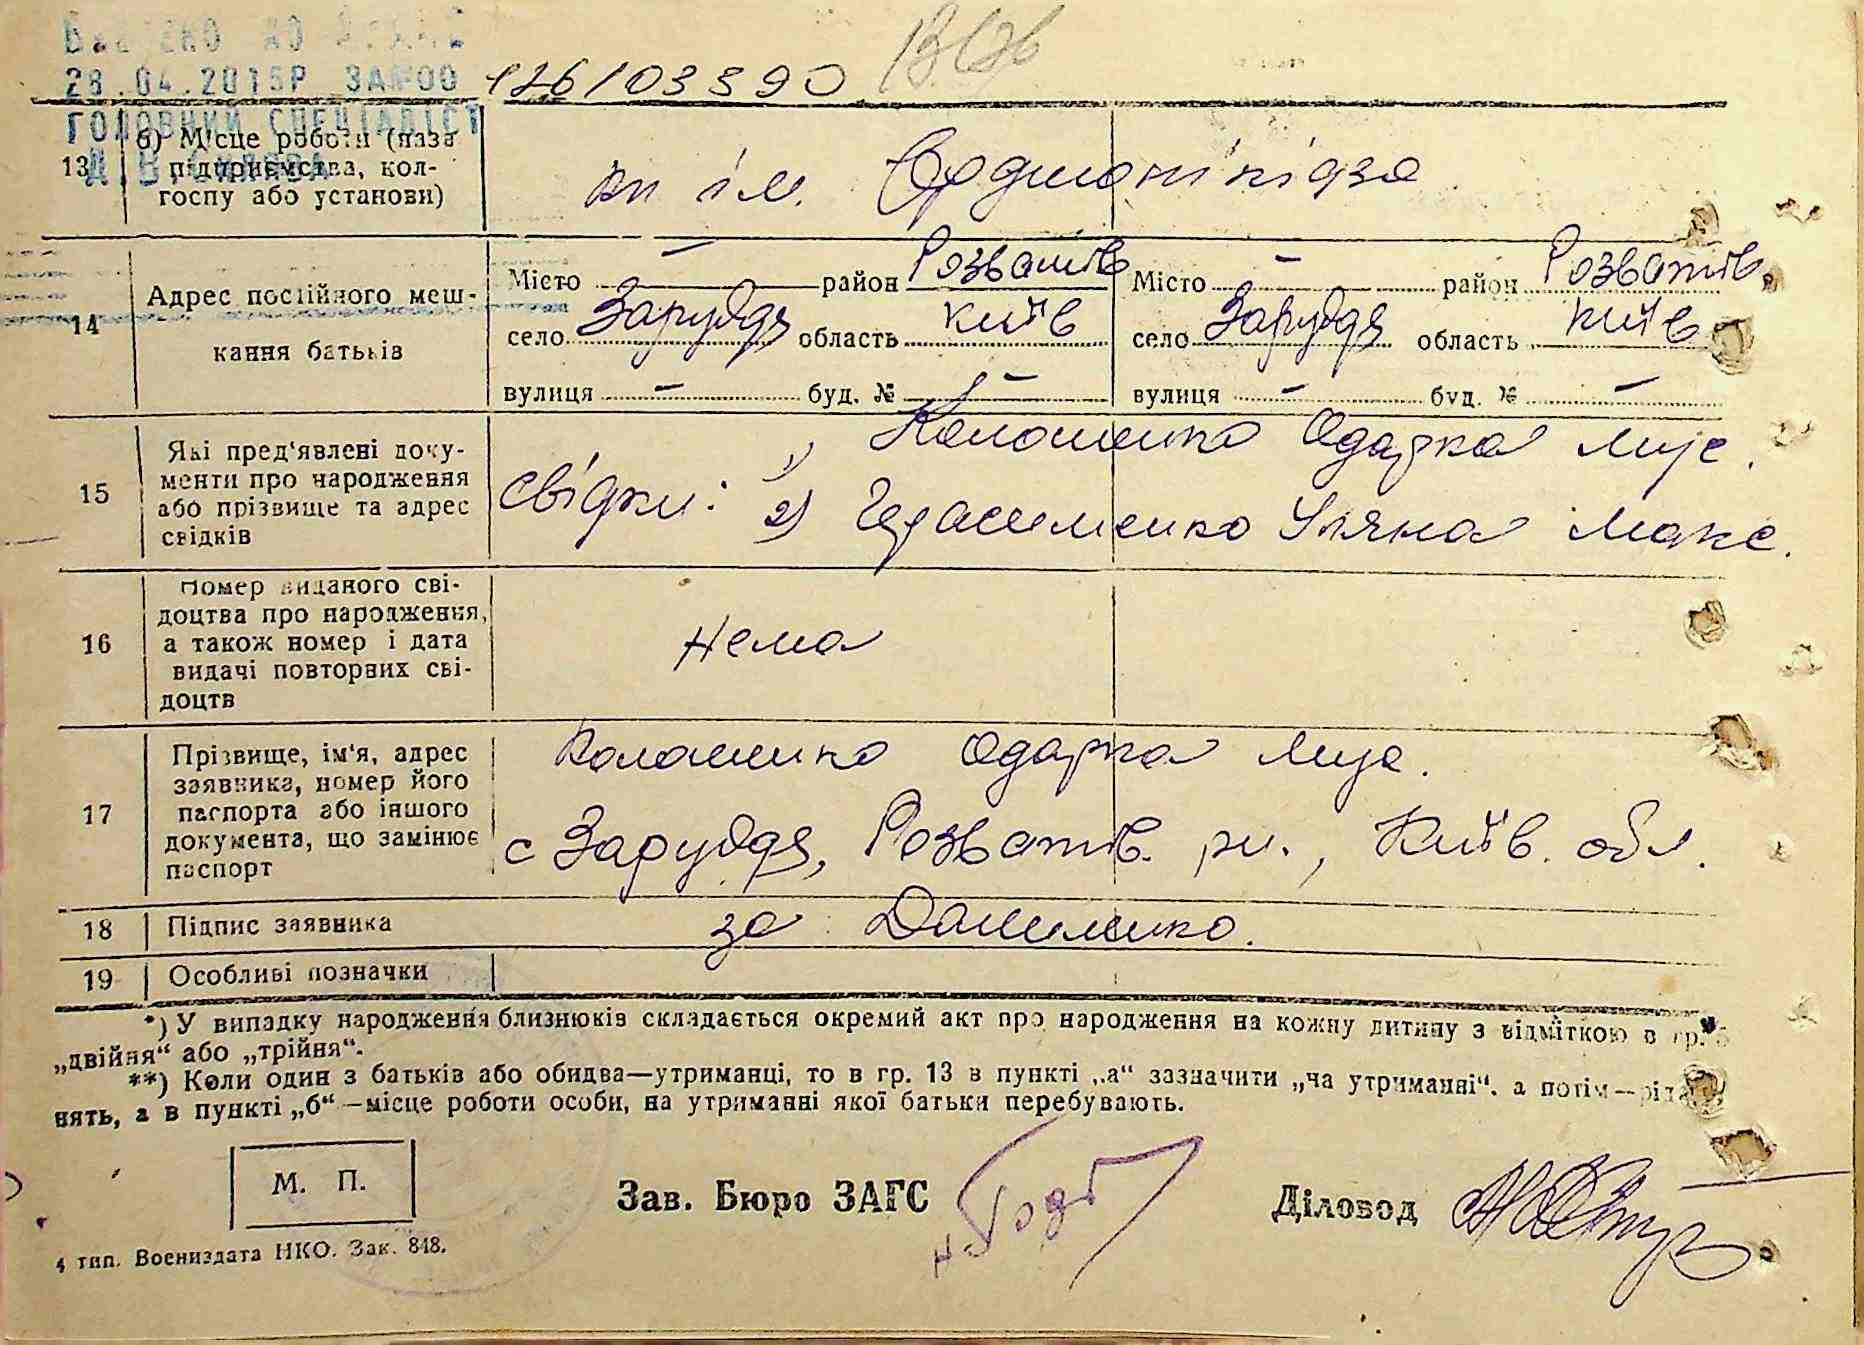 28.04.2015Р
126/03390
ГОЛОВНИЙ СПЕЦІАЛІСТ
13 б) Місце роботи (назва підприємства, колгоспу або установи)
кп ім. Орджонікідзе
14 Адрес постійного мешкання батьків
Місто — район Розважів Місто — район Розважів
село Заруддя область Київ село Заруддя область Київ
вулиця — буд. № — вулиця — буд. № —
15 Які пред'явлені документи про народження або прізвище та адрес свідків
свідки: 1) Одарка
2) Герасименко Уляна Макс.
16 Номер виданого свідоцтва про народження, а також номер і дата видачі повторних свідоцтв
нема
17 Прізвище, ім'я, адрес заявника, номер його паспорта або іншого документа, що замінює паспорт
Одарка
с Заруддя, Розважів. рн., Київ. обл.
18 Підпис заявника
за
19 Особливі позначки
*) У випадку народження близнюків складається окремий акт про народження на кожну дитину з відміткою в гр. 5
„двійня“ або „трійня“.
**) Коли один з батьків або обидва—утриманці, то в гр. 13 в пункті „а“ зазначити „на утриманні“, а потім—
нять, а в пункті „б“—місце роботи особи, на утриманні якої батьки перебувають.
М. П.
Зав. Бюро ЗАГС
Діловод
4 тип. Воениздата НКО. Зак. 848.